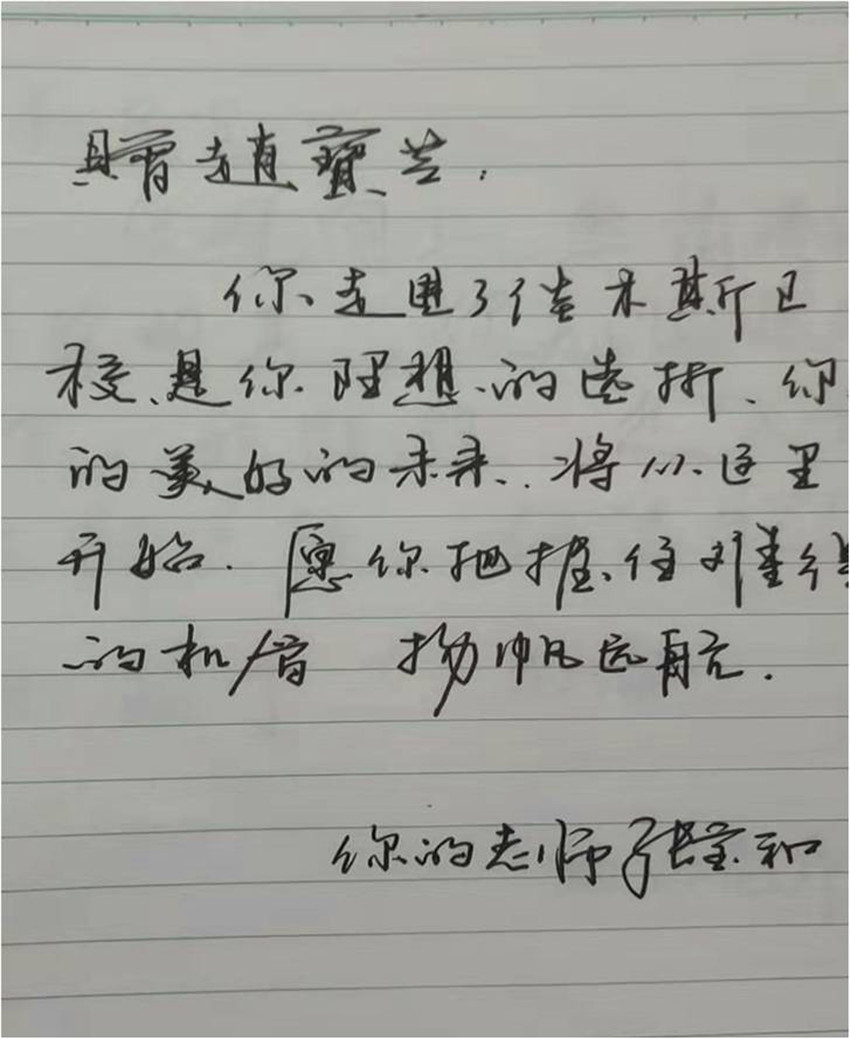 赠趙寶芸.
你走進了佳木斯卫
校、是你理想的选折、你
的美好的未来..将从这里
开始. 愿你把握住刘董
的机 扬帆远航.
你的老师张宝和